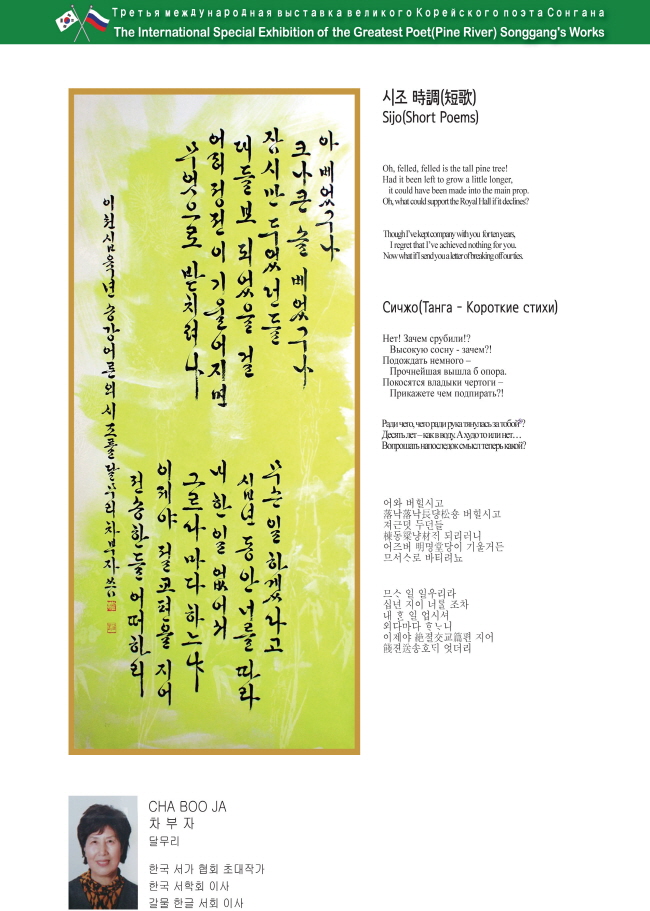 Третья международная выставка великого Корейского поэта Сонгана
The International Special Exhibition of the Greatest Poet(Pine River) Songgang's Works
아 베었구나
크나큰 솔 베었구나
잠시만 두었던들
대들보 되었을 걸
어허 정전이 기울어지면
무엇으로 받치려나
무슨 일 하겠다고
십년 동안 너를 따라
내 한 일 없어서
그르다 마다 하느냐
이제야 절교편을 지어
전송한들 어떠하리
이천십육년 송강어른의 시조를 달무리 차부자 씀
시조 時調(短歌)
Sijo(Short Poems)
Oh, felled, felled is the tall pine tree!
Had it been left to grow a little longer,
it could have been made into the main prop.
Oh, what could support the Royal Hall if it declines?
Though I've kept company with you for ten years,
I regret that I've achieved nothing for you.
Now what if I send you a letter of breaking off our ties.
Сичжо(Танга - Короткие стихи)
Нет! Зачем срубили!?
Высокую сосну - зачем?!
Подождать немного –
Прочнейшая вышла б опора.
Покосятся владыки чертоги –
Прикажете чем подпирать?!
Ради чего, чего ради рука тянулась за тобой?
Десять лет – как в воду. А худо то или нет…
Вопрошать напоследок смысл теперь какой?
어와 버힐시고
落낙落낙長댱松숑 버힐시고
져근덧 두던들
棟동梁냥材ᄌᆡ 되리러니
어즈버 明명堂당이 기울거든
므서스로 바티려뇨
므스 일 일우리라
십년 지이 너를 조차
내 ᄒᆞᆫ 일 업시셔
외다마다 ᄒᆞᄂᆞ니
이제야 絶절交교篇편 지어
餞젼送송호ᄃᆡ 엇더리
CHA BOO JA
차 부 자
달무리
한국 서가 협회 초대작가
한국 서학회 이사
갈물 한글 서회 이사